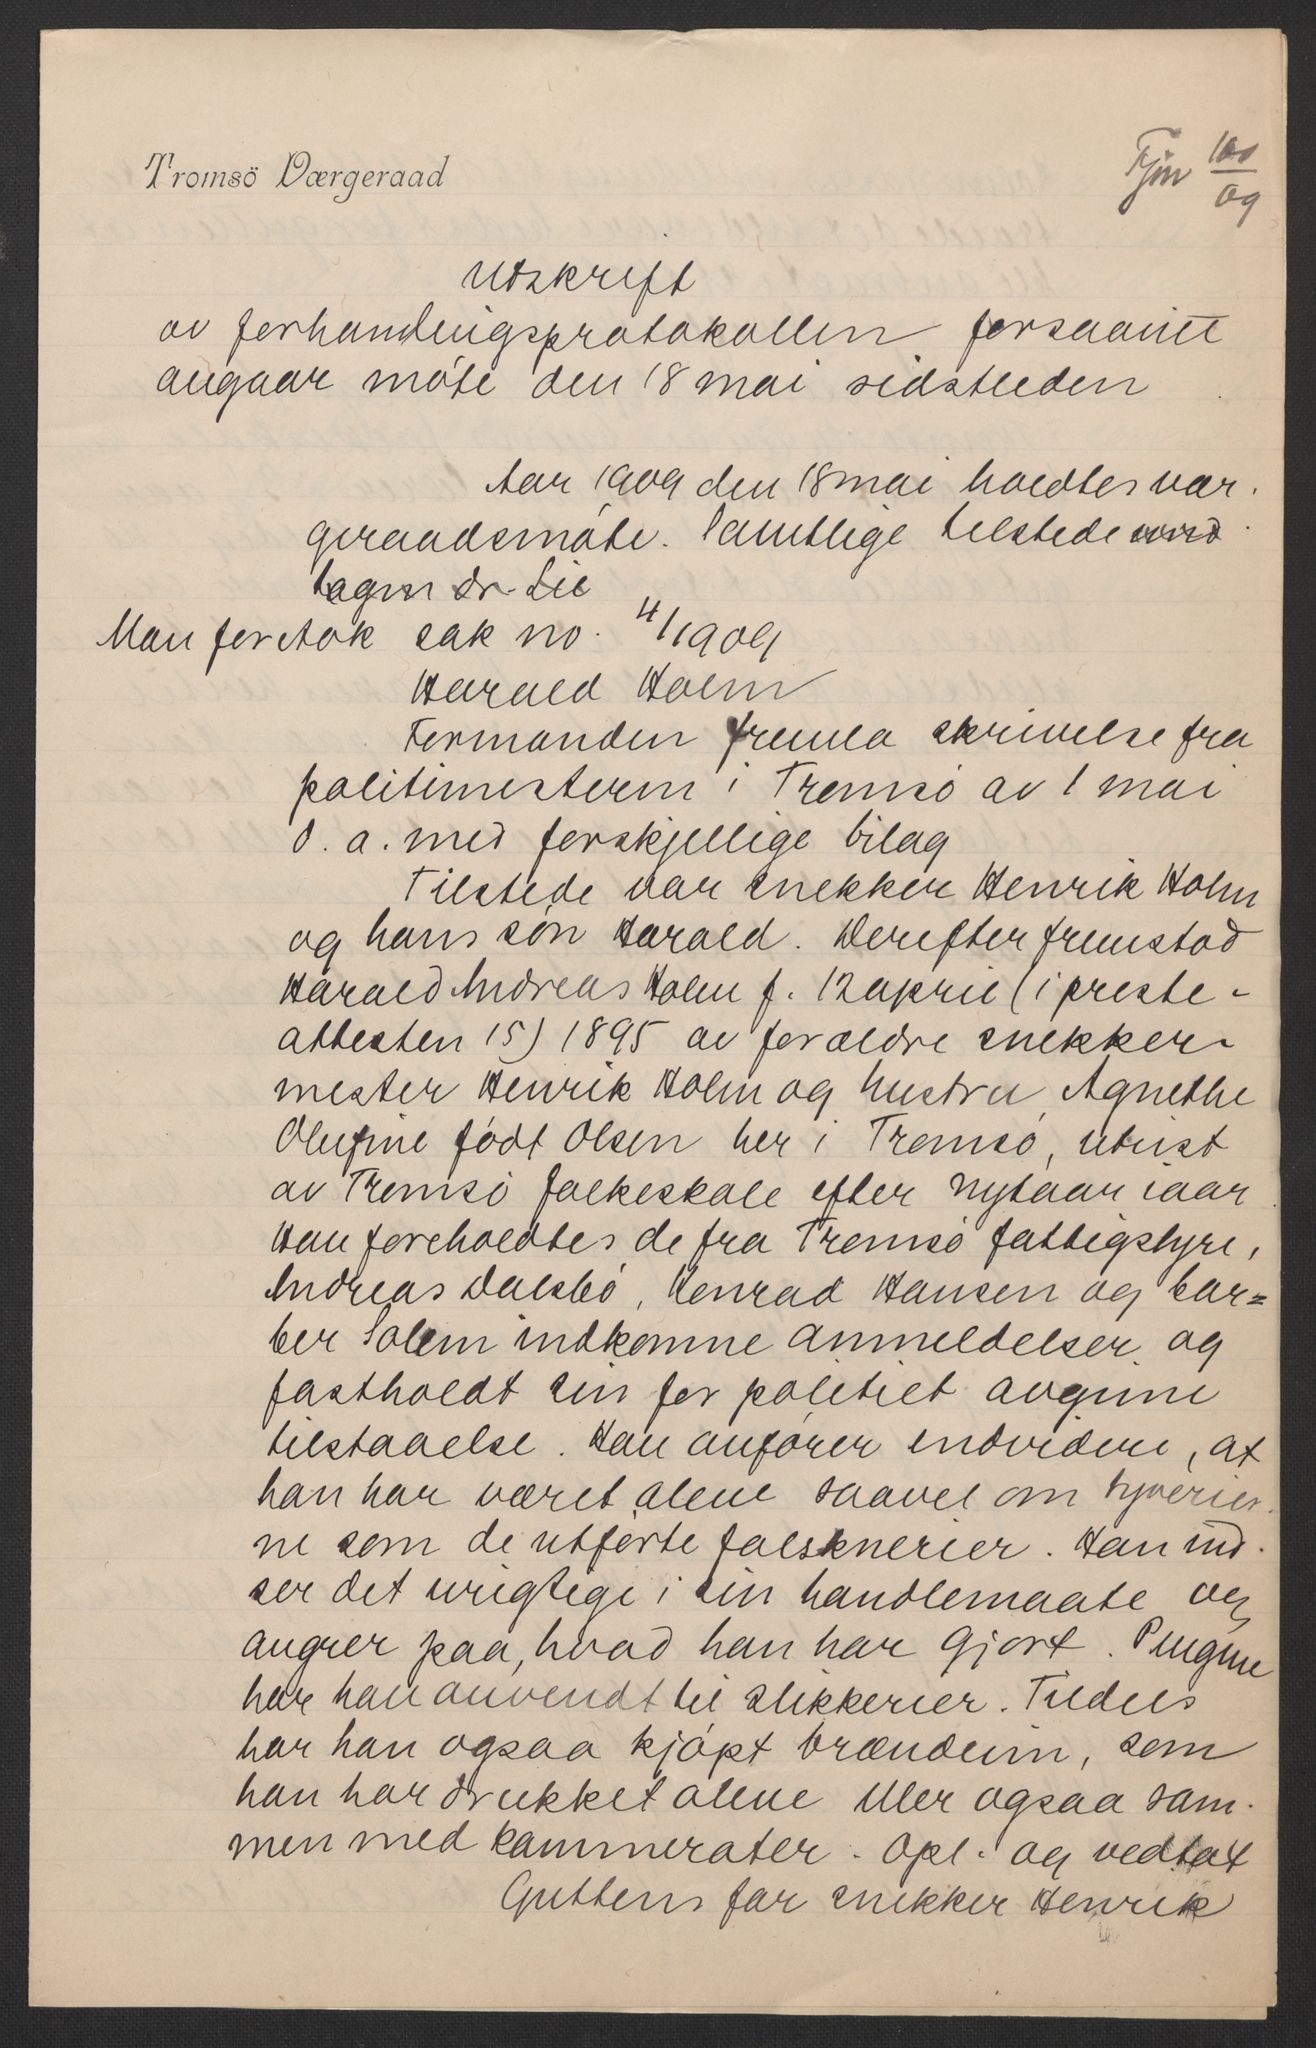 TromsöVærgeraad
Fjm 100/09
Utskrift
av forhandlingsprotokollen forsaavidt
angaar møte den 18 mai sidstleden
Aar 1909 den 18 mai holdtes vær-
geraadsmøte. Samtlige tilstede und
tagen dr. Lie
Man foretok sak no. 4/1909
Harald Holm
Formanden fremla skrivelse fra
politimesteren i Tromsø av 1 mai
d. a. med forskjellige bilag
Tilstede var snekker Henrik Holm
og hans søn Harald. Derefter fremstod
Harald Andreas Holm f. 12 april (i preste-
attesten 15) 1895 av forældre snekker-
mester Henrik Holm og hustru Agnethe
Olufine født Olsen her i Tromsø, utvist
av Tromsø folkeskole efter nytaar iaar
Han foreholdtes de fra Tromsø fattigstyre,
Andreas Dalsbø, Konrad Hansen og bar=
ber Solem indkomne anmeldelser og
fastholdt sin for politiet avgivne
tilstaaelse. Han anfører endvidere, at
han har været alene saavel om tyverier-
ne som de utførte falsknerier. Han ind-
ser det urigtige i sin handlemaate og
angrer paa, hvad han har gjort. Pengene
har han anvendt til slikkerier. Tildels
har han ogsaa kjøpt brændevin, som
han har drukket alene eller ogsaa sam-
men med kammerater. Opl. og vedtat
Guttens far snekker Henrik